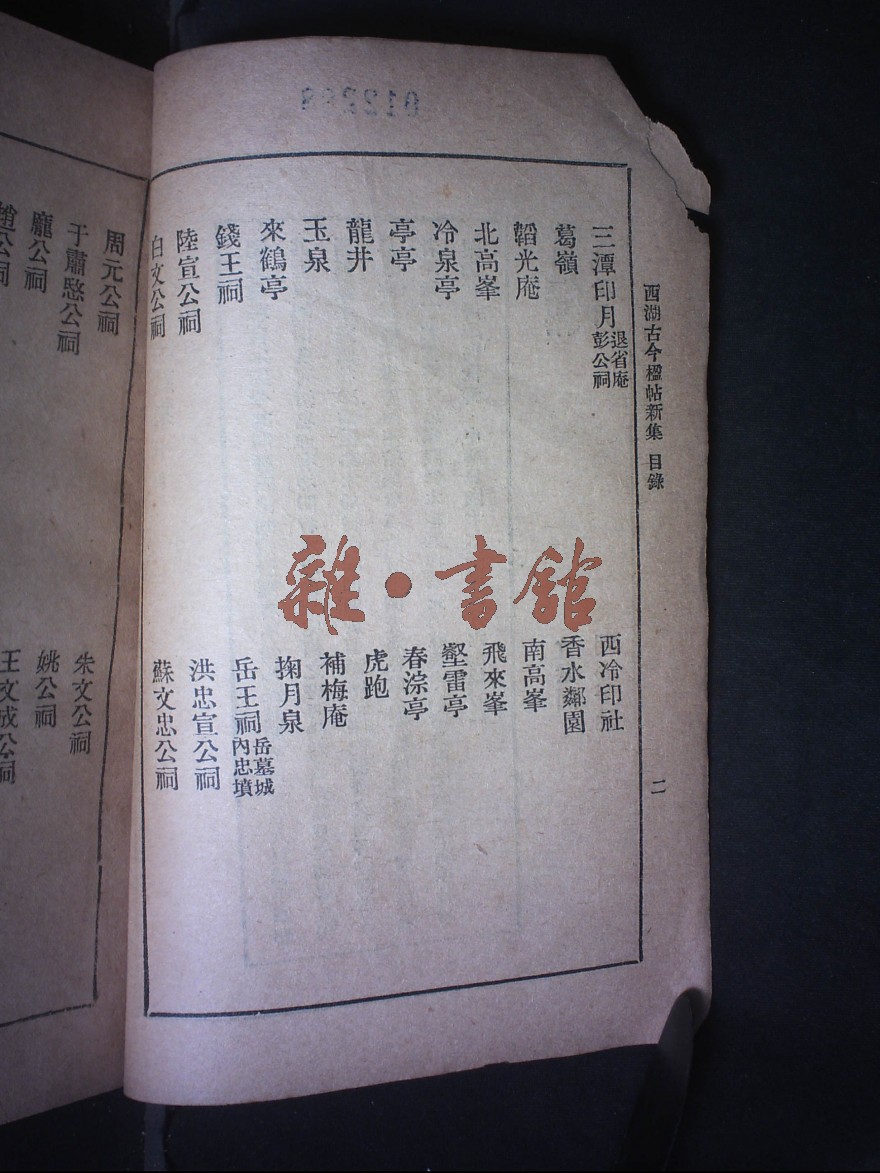 西湖古今楹帖新集 目錄
二
三潭印月 退省庵 彭公祠
西冷印社
葛嶺
香水鄰園
韜光庵
南高峯
北高峯
飛來峯
冷泉亭
壑雷亭
亭亭
春淙亭
龍井
虎跑
玉泉
補梅庵
來鶴亭
掬月泉
錢王祠
岳王祠 岳墓城 內忠墳
陸宣公祠
洪忠宣公祠
白文公祠
蘇文忠公祠
周元公祠
朱文公祠
于肅愍公祠
姚公祠
龐公祠
王文成公祠
趙公祠
雜·書館